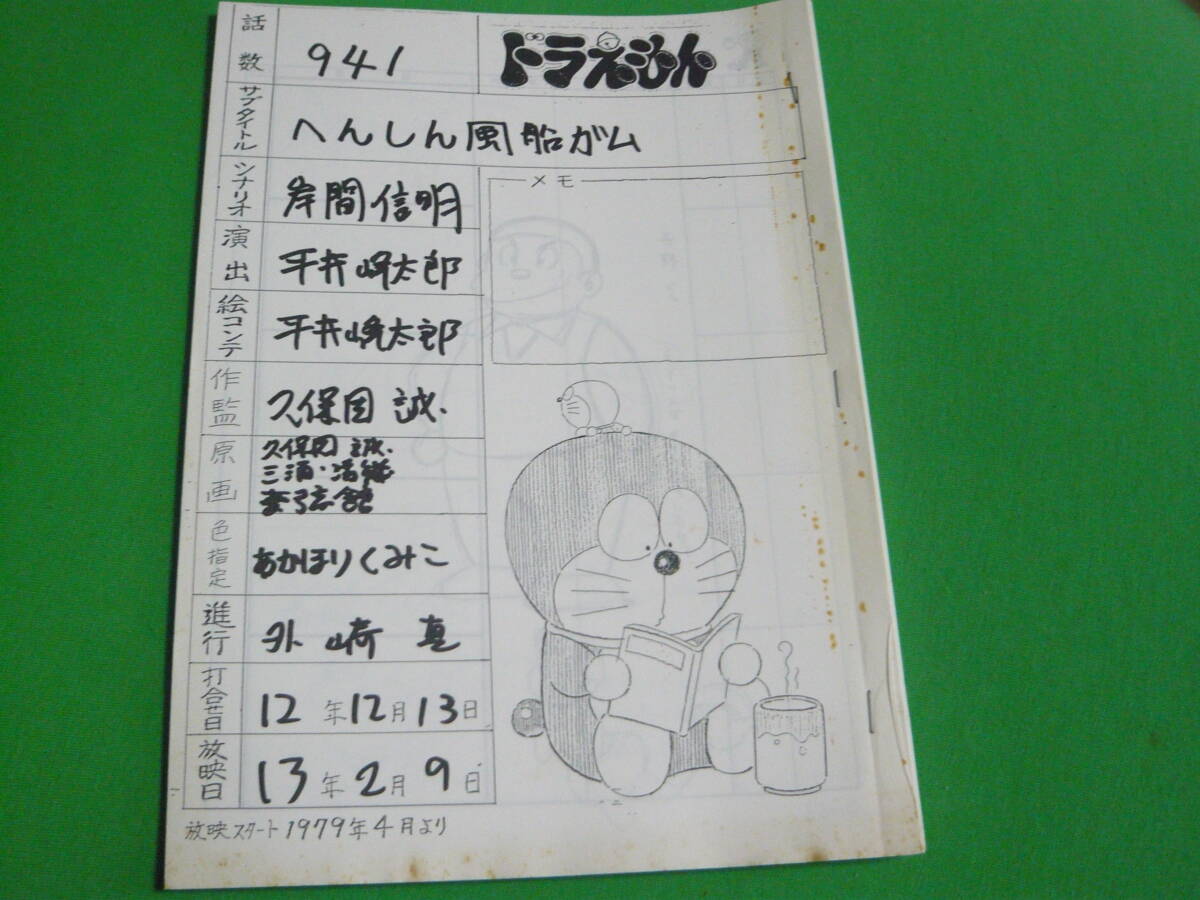 話数 941
ドラえもん
サブタイトル へんしん風船ガム
シナリオ 岸間信明
メモ
演出 平井峰太郎
絵コンテ 平井峰太郎
作監 久保田 誠
原画 久保田 誠
三浦・清継
色指定 あかほりくみこ
進行 外崎 真
打合せ日 12年12月13日
放映日 13年2月9日
放映スタート1979年4月より